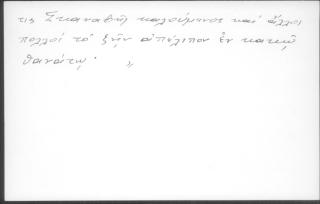 τις Σκαναβῆς καλούμενος καὶ ἄλλοι
πολλοί τὸ ζῆν ἀπέλιπον ἐν κακῷ
θανάτῳ· »